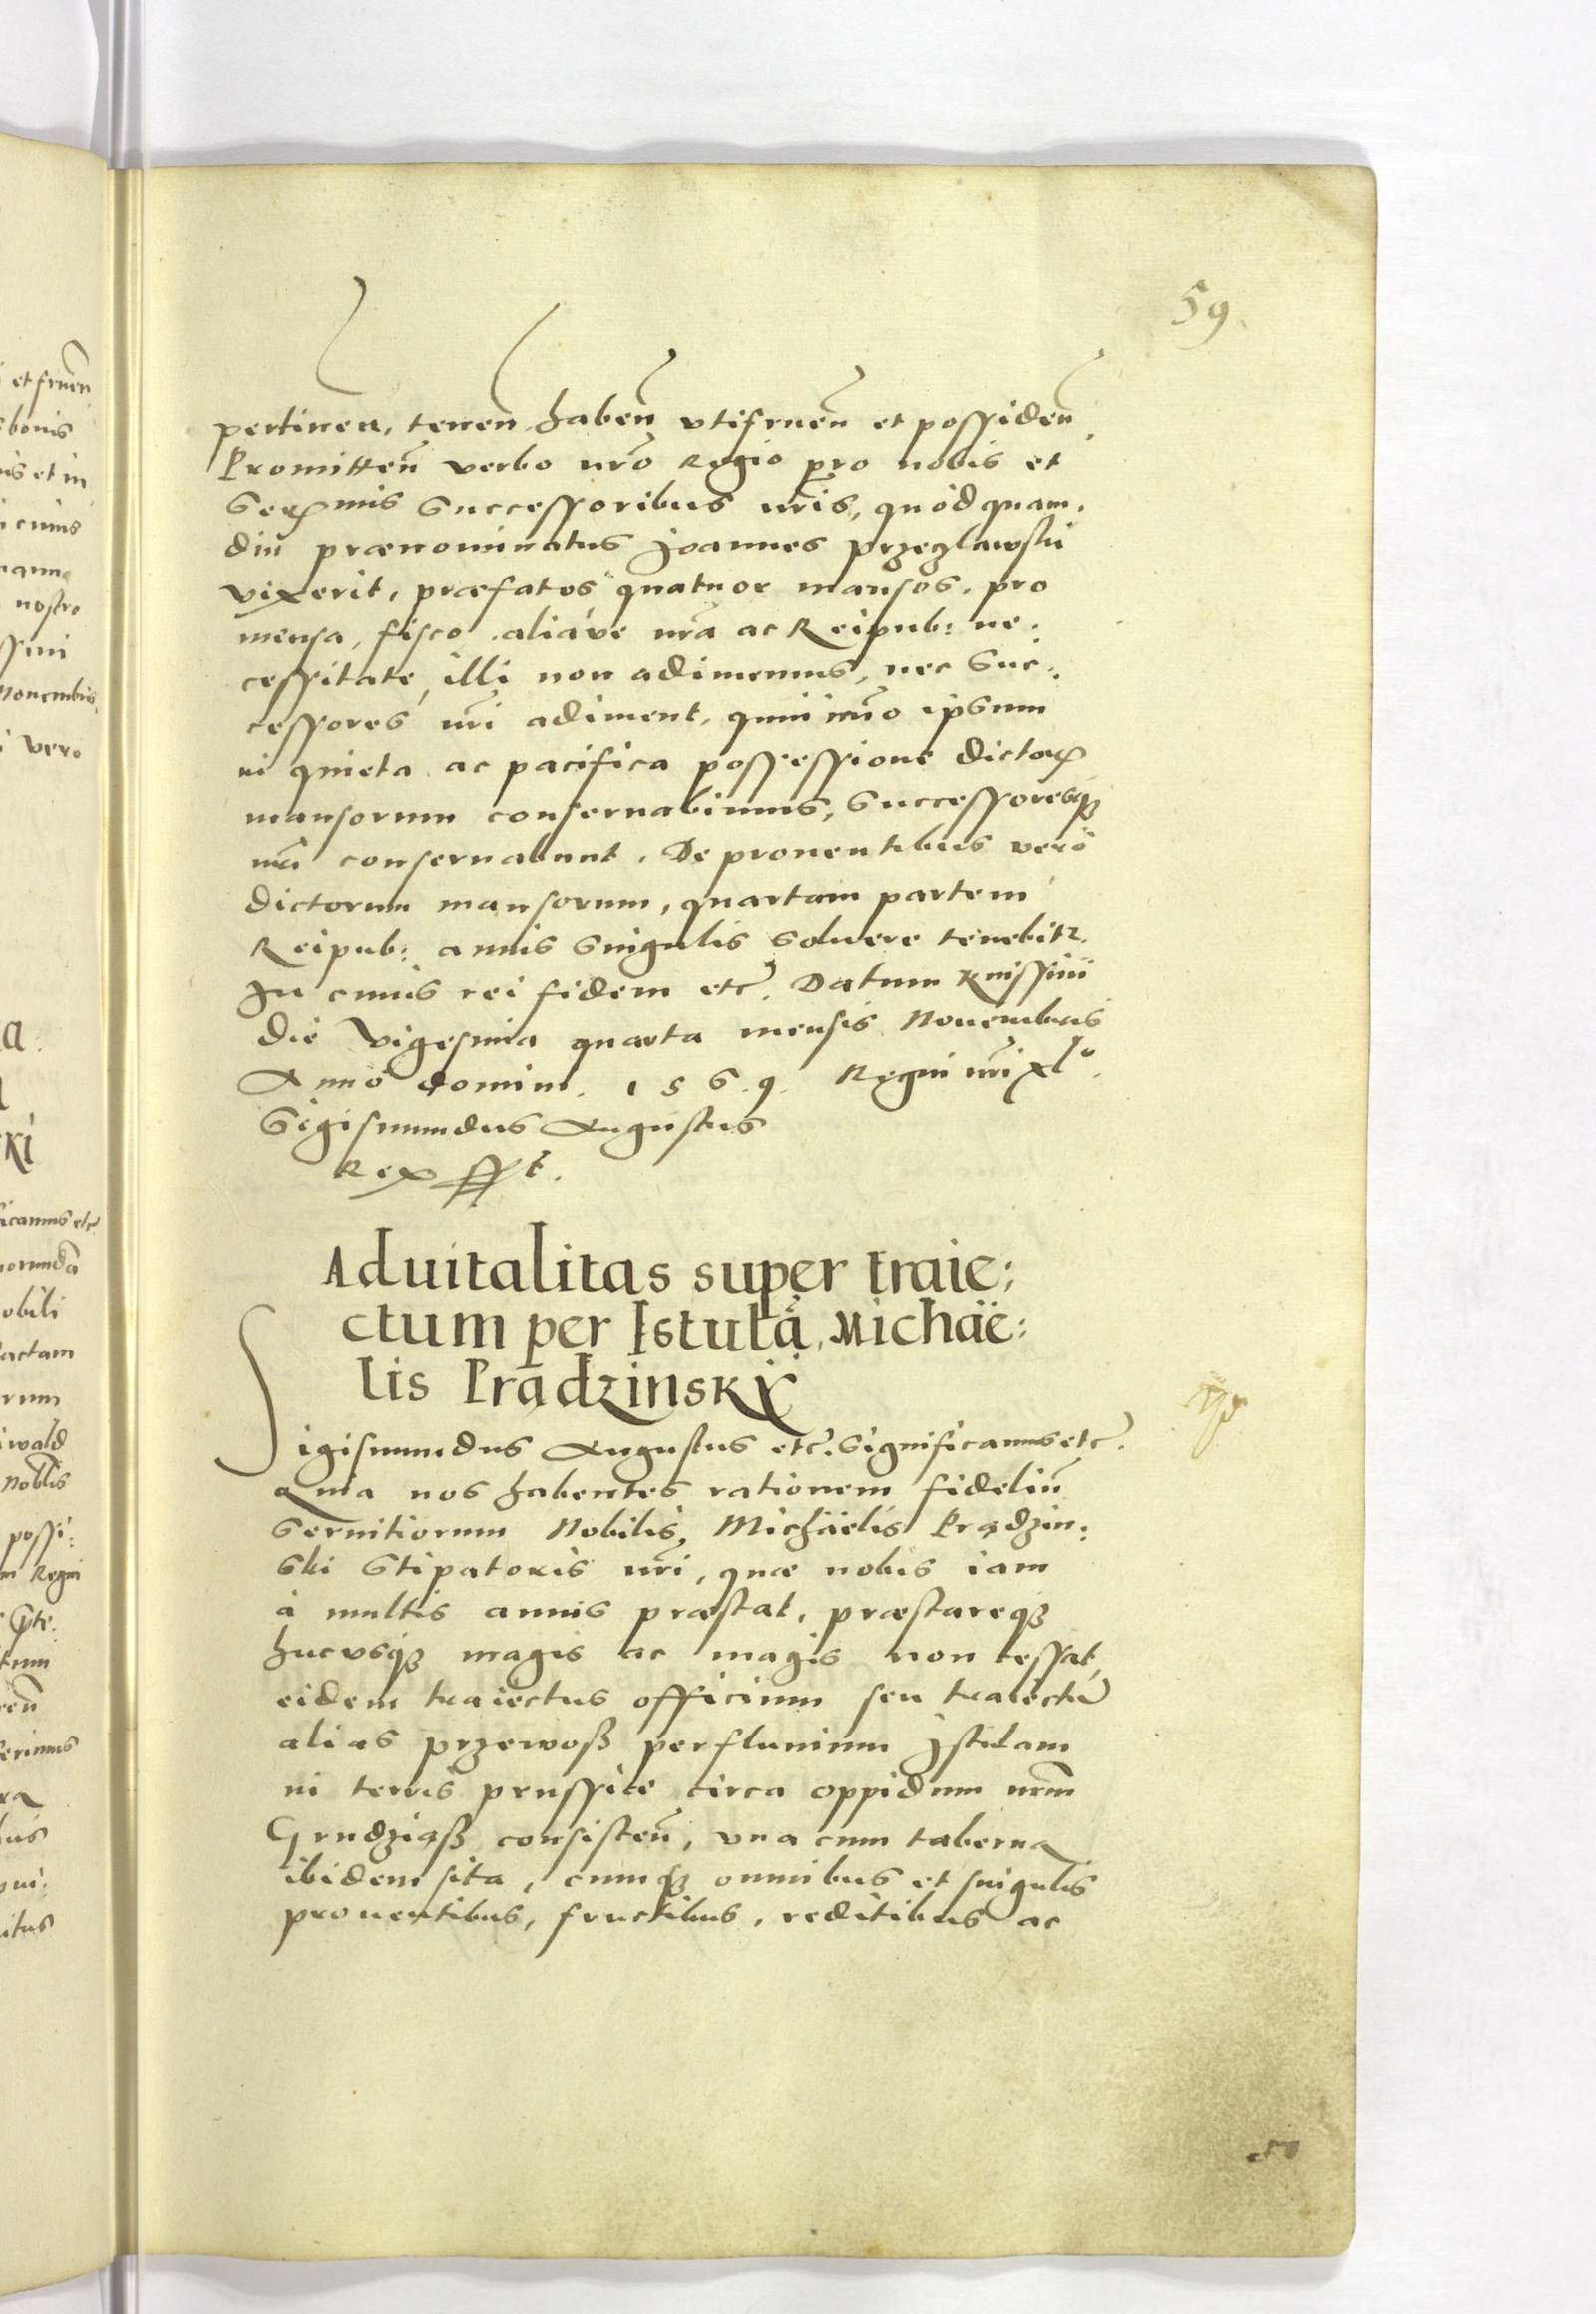 59.
pertinen, tenen haben vtifruen et possiden.
Promitten verbo nro Regio pro nobis et
Sermis Successoribus nris, quòd quam,
diu prænominatus Joannes Przezlawski
vixerit, præfatos quatuor mansos, pro
mensa, fisco, aliáve nra ac Reipub: ne:
cessitate, illi non adimemus, nec Suc:
cessores nri adiment, quin imo ipsum
in quieta ac pacifica possessione dictorum
mansorum conseruabimus, Successoresque
nri conseruabunt. De prouentibus verò
dictorum mansorum, quartam partem
Reipub: annis singulis soluere tenebitr.
In cuius rei fidem etc. Datum Knissini
die Vigesima quarta mensis Nouembris
Anno domini. 1569. Regni nri xlo.
Sigismundus Augustus
Rex sst.
Aduitalitas super traie:
ctum per Istulã, Michaë:
lis Prądzinskÿ
Sigismundus Augustus etc. Significamus etc.
Quia nos habentes rationem fideliũ
seruitiorum Nobilis, Michaëlis Prądzin:
ski Stipatoris nri, quæ nobis iam
à multis annis præstat, præstareque
hucvsque magis ac magis non cessat,
eidem traiectus officium seu traiectũ
alias przewoß per fluuium Jstulam
in terris prussiæ circa oppidum nrm
Grudziąß consisten, vna cum taberna
ibidem sita, cumque omnibus et singulis
prouentibus, fructibus, reditibus ac